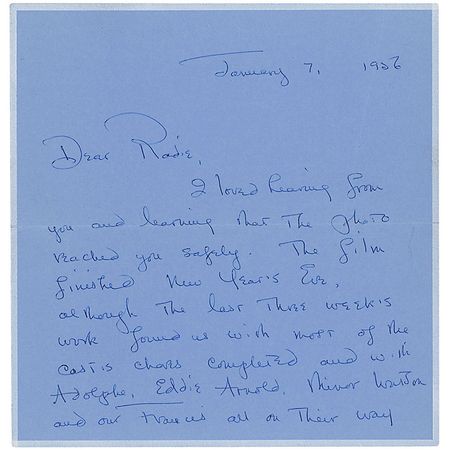 January 7, 1956
Dear Radie,
I loved hearing from
you and learning that the photo
reached you safely. The film
finished New Year's Eve,
although the last three week's
work found us with most of the
cast's chores completed and with
Adolphe, Eddie Arnold, Minor Watson
and our Francis all on their way